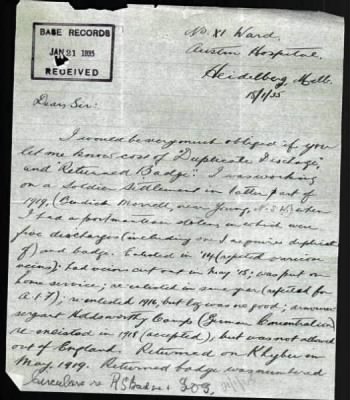 BASE RECORDS
JAN 21 1935
RECEIVED
No. XI Ward,
Austin Hospital,
Heidelberg, Melb.
18/1/35
Dear Sir:
I would be very much obliged if you
let me know cost of "Duplicate Discharge,"
and "Returned Badge." I was working
on a Soldier Settlement in latter part of
1919, (Cundick Morrell, near Young, N.S.W.) when
I had a portmanteau stolen in which were
five discharges (including one I require duplicate
of) and badge. Enlisted in '14 (rejected varicose
veins); had veins cut out in May '15; was put on
home service; re-enlisted in same year (rejected for
A.I.F.); re-enlisted 1916, but leg was no good;
sergeant Holdsworthy Camp (German Concentration)
re-enlisted in 1918 (accepted), but was not allowed
out of England. Returned on Khyber in
May, 1919. Returned badge was numbered
Circulars re R.S. Badge &